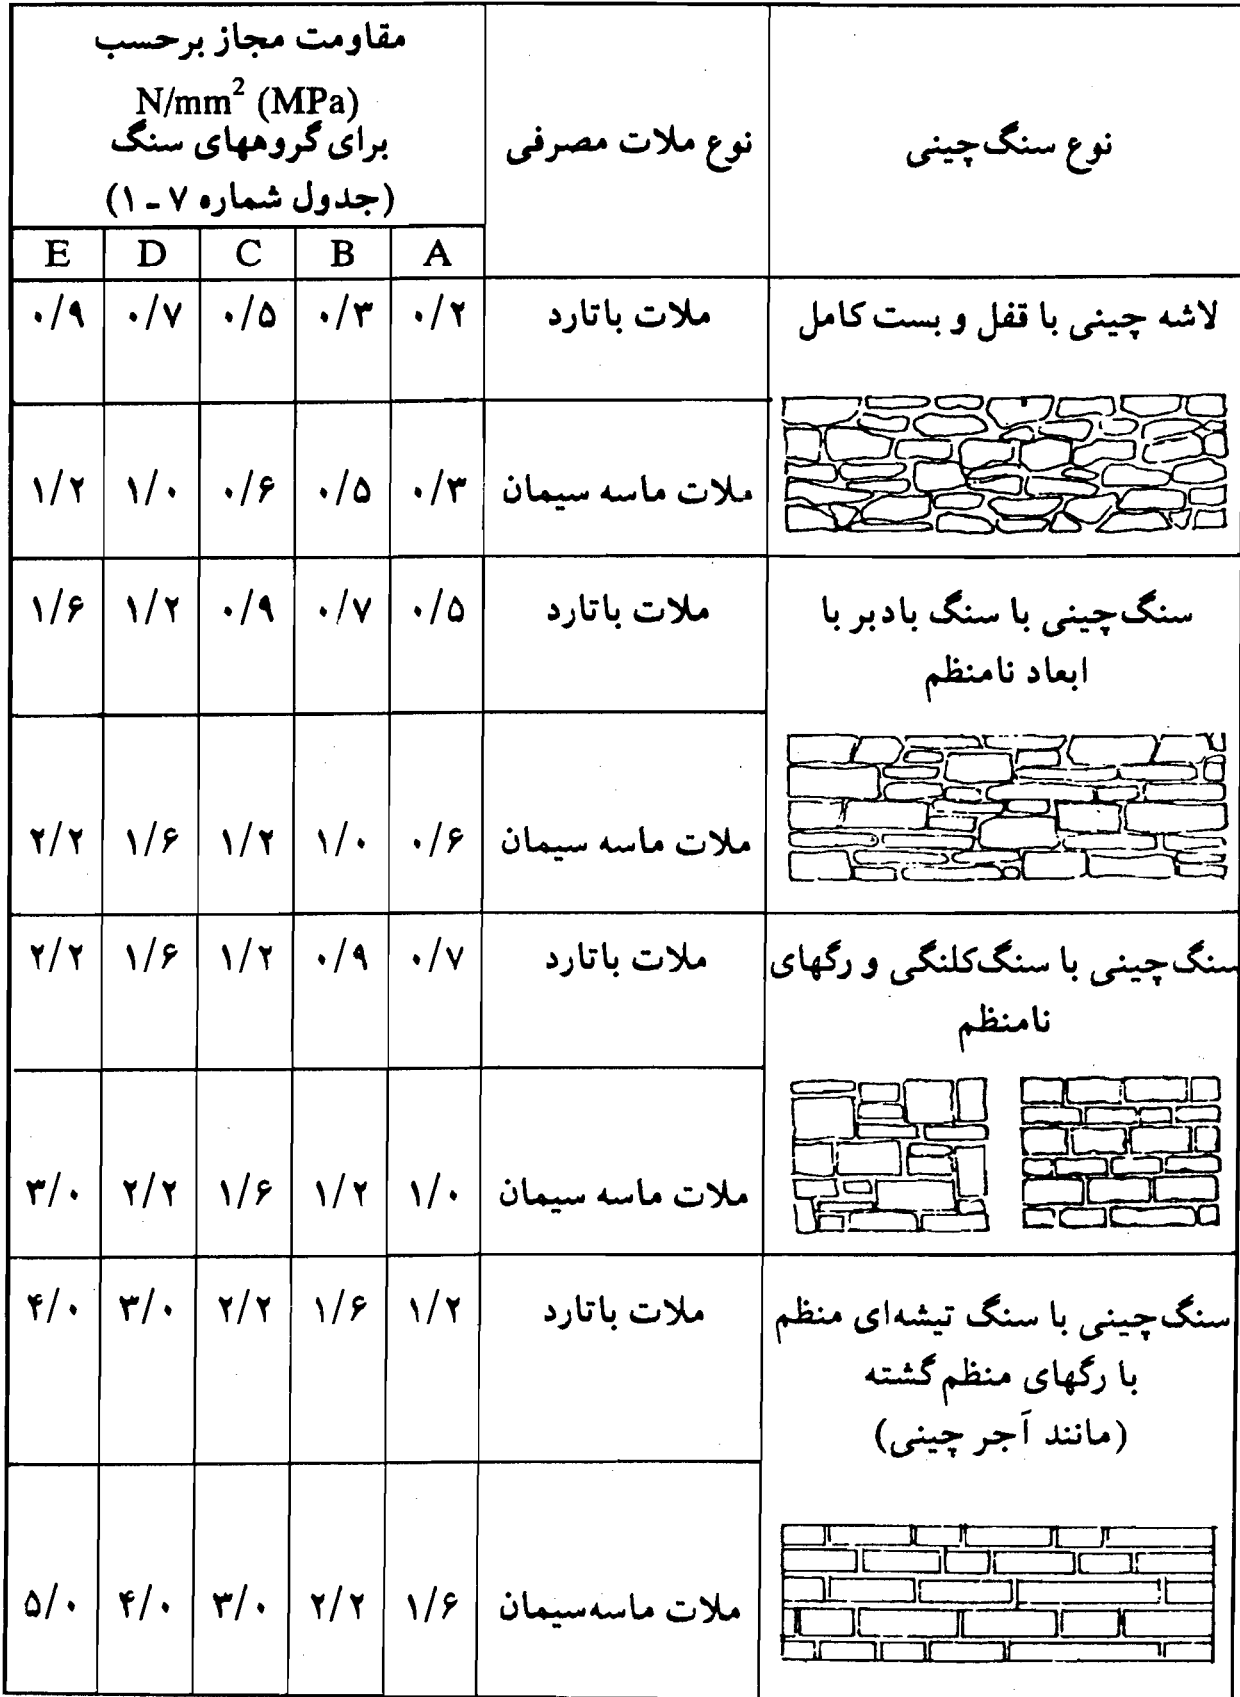 نوع سنگ‌چینی
نوع ملات مصرفی
مقاومت مجاز برحسب
N/mm² (MPa)
برای گروههای سنگ
(جدول شماره ۷ ـ ۱)
A B C D E
لاشه چینی با قفل و بست کامل
ملات باتارد ۰/۲ ۰/۳ ۰/۵ ۰/۷ ۰/۹
ملات ماسه سیمان ۰/۳ ۰/۵ ۰/۶ ۱/۰ ۱/۲
سنگ‌چینی با سنگ بادبر با
ابعاد نامنظم
ملات باتارد ۰/۵ ۰/۷ ۰/۹ ۱/۲ ۱/۶
ملات ماسه سیمان ۰/۶ ۱/۰ ۱/۲ ۱/۶ ۲/۲
سنگ‌چینی با سنگ‌کلنگی و رگهای
نامنظم
ملات باتارد ۰/۷ ۰/۹ ۱/۲ ۱/۶ ۲/۲
ملات ماسه سیمان ۱/۰ ۱/۲ ۱/۶ ۲/۲ ۳/۰
سنگ‌چینی با سنگ تیشه‌ای منظم
با رگهای منظم گشته
(مانند آجر چینی)
ملات باتارد ۱/۲ ۱/۶ ۲/۲ ۳/۰ ۴/۰
ملات ماسه‌سیمان ۱/۶ ۲/۲ ۳/۰ ۴/۰ ۵/۰